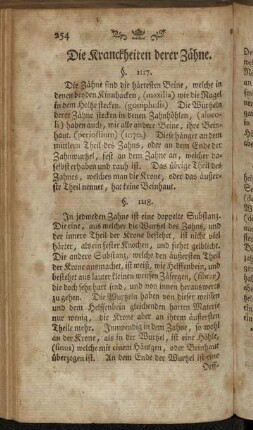 254
Die Kranckheiten derer Zähne.
§. 1117.
Die Zähne sind die härtesten Beine, welche in
denen beyden Kinnbacken, (maxilla) wie die Nagel
in dem Holtze stecken. (gomphosis) Die Wurtzeln
derer Zähne stecken in denen Zahnhöhlen, (alveo-
li) haben auch, wie alle andere Beine, ihre Bein-
haut. (periostium) Diese hänget an dem
mittlern Theil des Zahns, oder an dem Ende der
Zahnwurtzel, fest an dem Zahne an, welcher da-
selbst erhaben und rauh ist. Das übrige Theil des
Zahnes, welches man die Krone, oder das äusser-
ste Theil nennet, hat keine Beinhaut.
§. 1118.
In jedweden Zahne ist eine doppelte Substanz.
Die eine, aus welcher die Wurtzel des Zahns, und
der innere Theil der Krone bestehet, ist nicht viel
härter, als ein fester Knochen, und siehet gelblicht.
Die andere Substanz, welche den äussersten Theil
der Krone ausmachet, ist weiß, wie Helffenbein, und
bestehet aus lauter kleinen weissen Zäsergen,
die doch sehr hart sind, und von innen herauswerts
zu gehen. Die Wurtzeln haben von dieser weissen
und dem Helffenbein gleichenden harten Materie
nur wenig, die Krone aber an ihrem äussersten
Theile mehr. Inwendig in dem Zahne, so wohl
an der Krone, als in der Wurtzel, ist eine Höhle,
(sinus) welche mit einem Häutgen, oder Beinhaut
überzogen ist. An dem Ende der Wurtzel ist eine
Oeff-